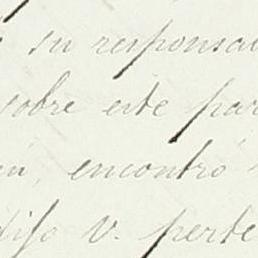 su responsa
sobre este par
en, encontro
dijo V. perte